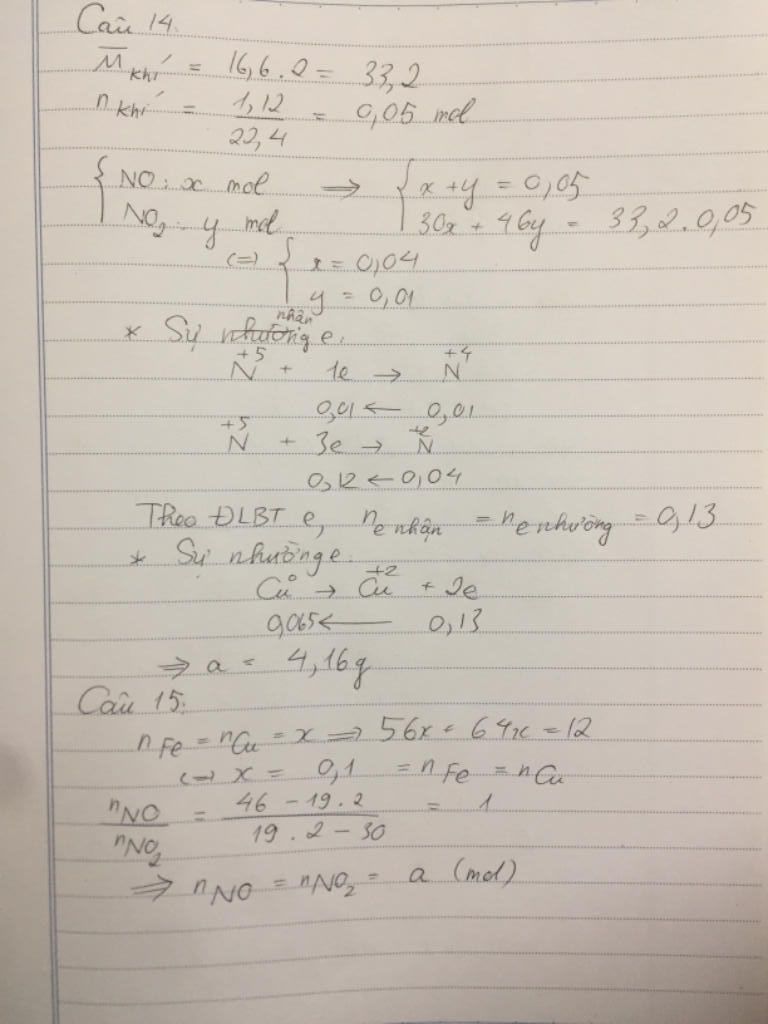 Câu 14.
M̅ khí = 16,6 . 2 = 33,2
n khí = 1,12 / 22,4 = 0,05 mol
{ NO : x mol ⇒ { x + y = 0,05
NO₂ : y mol 30x + 46y = 33,2 . 0,05
(=) { x = 0,04
y = 0,01
nhận
* Sự nhường e.
N⁺⁵ + 1e → N⁺⁴
0,01 ← 0,01
N⁺⁵ + 3e → N⁺²
0,12 ← 0,04
Theo ĐLBT e, n e nhận = n e nhường = 0,13
* Sự nhường e.
Cu⁰ → Cu⁺² + 2e
0,065 ← 0,13
⇒ a = 4,16g
Câu 15.
n Fe = n Cu = x ⇒ 56x + 64x = 12
(=) x = 0,1 = n Fe = n Cu
nNO / nNO₂ = 46 - 19 . 2 / 19 . 2 - 30 = 1
⇒ nNO = nNO₂ = a (mol)